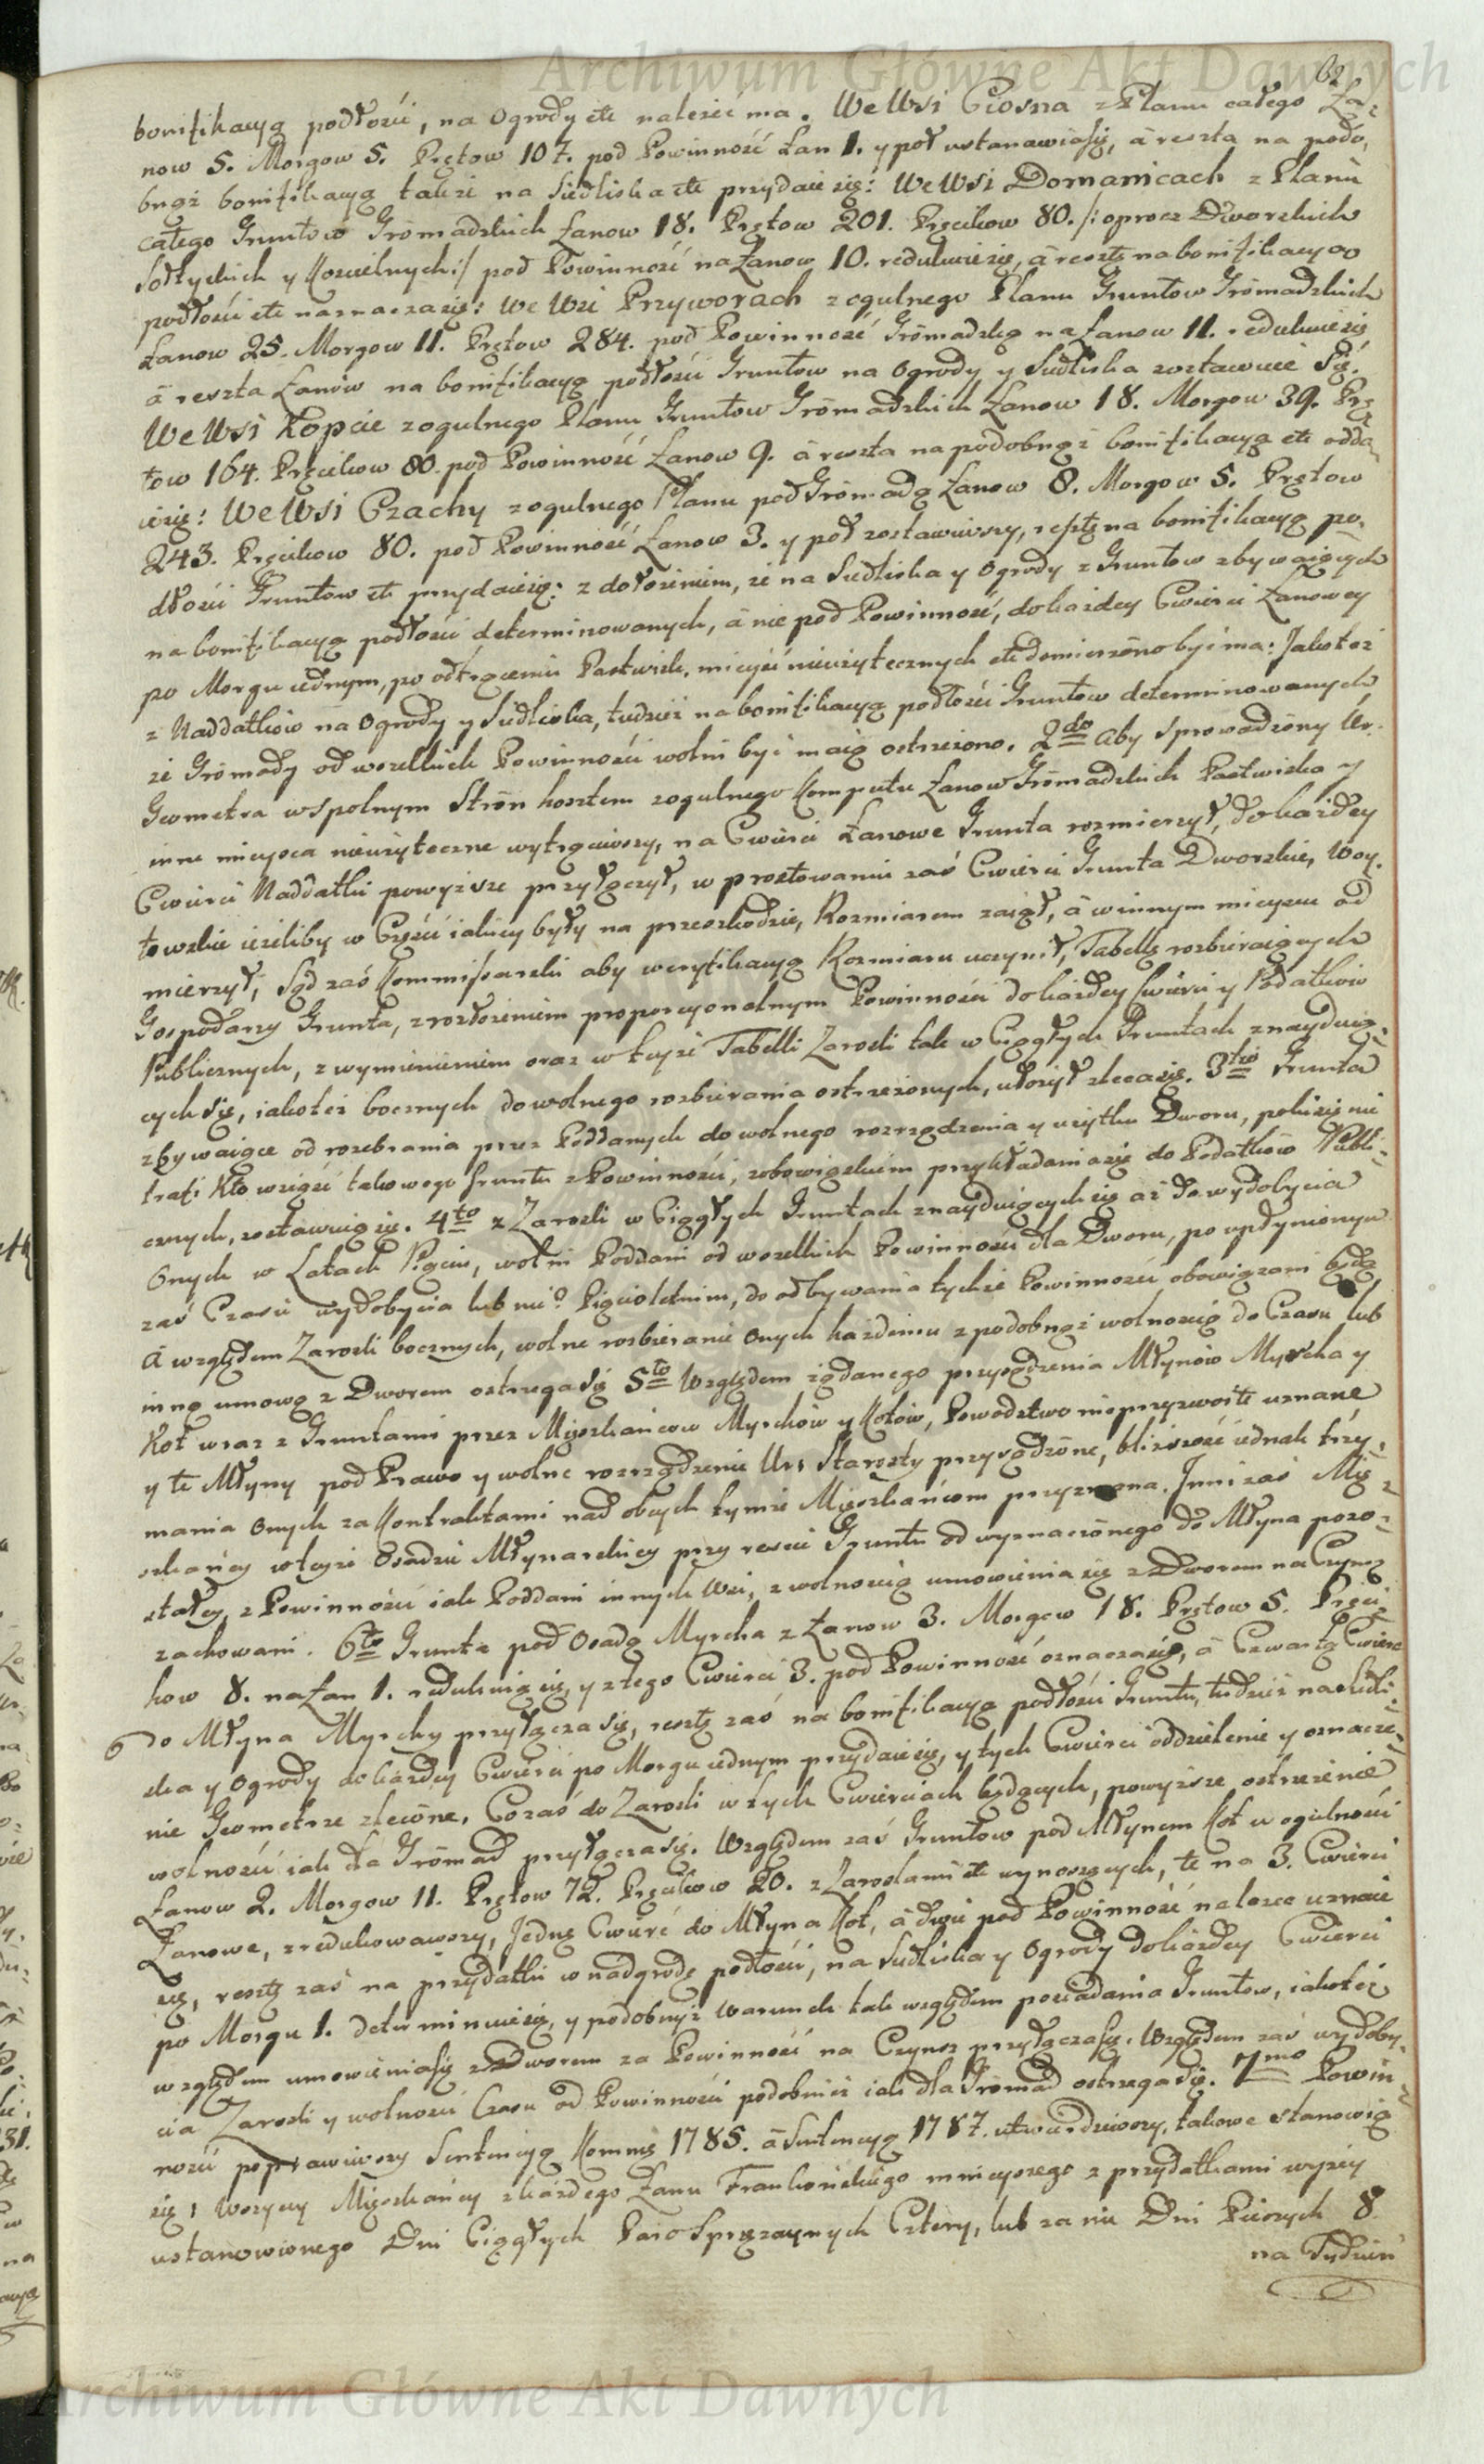 Archiwum Główne Akt Dawnych
62
bonifikacyą podłości, na Ogrody etc należeć ma. We Wsi Ciosna z Planu całego Ła-
now 5. Morgow 5. Prętow 107. pod Powinność Łan 1. y poł ustanawia się, à reszta na podo-
bnąż bonifikacyą także na Siedliska etc przydaie się: We Wsi Domanicach z Planu
całego Gruntow Gromadzkich Łanow 18. Prętow 201. Pręcikow 80. /: oprocz Dworskich
Sołtyskich y Koscielnych :/ pod Powinność na Łanow 10. redukuie się, à resztę na bonifikacyą
podłości etc naznacza się: We Wsi Przyworach z ogulnego Planu Gruntow Gromadzkich
Łanow 25. Morgow 11. Prętow 284. pod Powinność Gromadzką na Łanow 11. redukuie się
à reszta Łanów na bonifikacyą podłości Gruntow na Ogrody y Siedliska zostawuie się.
We Wsi Kopcie z ogulnego Planu Gruntow Gromadzkich Łanow 18. Morgow 39. Prę-
tow 164. Pręcikow 80. pod Powinność Łanow 9. à reszta na podobnąż bonifikacyą etc odda-
ie się: We Wsi Czachy z ogulnego Planu pod Gromadą Łanow 8. Morgow 5. Prętow
243. Pręcikow 80. pod Powinność Łanow 3. y poł zostawiwszy, resztę na bonifikacyą po-
dłości Gruntow etc przydaie się: z dołożeniem, że na Siedliska y Ogrody z Gruntow zbywaiących
na bonifikacyą podłości determinowanych, à nie pod Powinność, do każdey Cwierci Łanowey
po Morgu iednym, po odtrąceniu Pastwisk, mieysc nieużytecznych etc domierzono być ma: Jakoteż
z Naddatkow na Ogrody y Siedliska, tudzież na bonifikacyą podłości Gruntow determinowanych
że Gromady od wszelkich Powinności wolni być maią ostrzeżono. 2do Aby sprowadzony Ur.
Geometra wspolnym Stron kosztem z ogulnego Komputu Łanow Gromadzkich Pastwiska y
inne mieysca nieużyteczne wytrąciwszy, na Cwierci Łanowe Grunta rozmierzył, do każdey
Cwierci Naddatki powyższe przyłączył, w prostowaniu zaś Cwierci Grunta Dworskie, Woy-
towskie ieżeliby w Części iakiey były na przeszkodzie, Rozmiarem zaiął, à w innym mieyscu od
mierzył; Sąd zaś Kommissarski aby weryfikacyą Rozmiaru uczynił, Tabellę rozbieraiących
Gospodarzy Grunta, z rozłożeniem proporcyonalnym Powinności do każdey Cwierci y Podatkow
Publicznych, z wymienieniem oraz w teyże Tabelli Zarosli tak w Ciągłych Gruntach znayduią-
cych się, iakoteż bocznych do wolnego rozbierania ostrzeżonych, ułożył zleca się. 3tio Grunta
zbywaiące od rozebrania przez Poddanych do wolnego rozrządzenia y użytku Dworu, poki się nie
trafi Kto wziąść takowego Gruntu z Powinności, z obowiązkiem przykładania się do Podatkow Publi-
cznych, zostawuią się. 4to z Zarosli w Ciągłych Gruntach znayduiących się aż do wydobycia
Onych w Latach Pięciu, wolni Poddani od wszelkich Powinności dla Dworu, po upłynionym
zaś Czasie wydobycia lub nie? Pięcioletnim, do odbywania tychże Powinności obowiązani będą
à względem Zarosli bocznych, wolne rozbieranie Onych każdemu z podobnąż wolnością do Czasu lub
inną umową z Dworem ostrzega się 5to Względem żądanego przysądzenia Młynow Myrcha y
Kot wraz z Gruntami przez Mieszkańcow Myrchow y Kotow, Powodztwo nieprzyzwoite uznane
y te Młyny pod Prawo y wolne rozrządzenie Ur. Starosty przysądzone, bliższość iednak trzy-
mania Onych za Kontraktami nad obcych tymże Mieszkańcom przyznana. Inni zaś Mie-
szkańcy w teyże Osadzie Młynarskiey przy reszcie Gruntu od wyznaczonego do Młyna pozo-
stałey, z Powinności iak Poddani innych Wsi, z wolnością umowienia się z Dworem na Czynsz
zachowani. 6to Grunta pod Osadą Myrcha z Łanow 3. Morgow 18. Prętow 5. Pręci-
kow 8. na Łan 1. redukuią się, y z tego Cwierci 3. pod Powinność oznacza się, à Czwarta Cwierc
do Młyna Myrchy przyłącza się, resztę zaś na bonifikacyą podłości Gruntu, tudzież na siedli-
ska y Ogrody do każdey Cwierci po Morgu iednym przydaie się, y tych Cwierci oddzielenie y oznacze-
nie Geometrze zlecone. Co zaś do Zarosli w tych Cwierciach będących, powyższe ostrzeżenie
wolności iak dla Gromad przyłącza się. Względem zaś Gruntow pod Młynem Kot w ogulności
Łanow 2. Morgow 11. Prętow 72. Pręcikow 20. z Zaroslami etc wynoszących, te na 3. Cwierci
Łanowe, zredukowawszy, Jednę Cwierć do Młyna Kot, à dwie pod Powinność należące uznaie
się, resztę zaś na przydatki w nadgrodę podłości, na Siedliska y Ogrody do każdey Cwierci
po Morgu 1. determinuie się, y podobnyż Warunek tak względem posiadania Gruntow, iakoteż
względem umowienia się z Dworem za Powinność na Czynsz przyłącza się. Względem zaś wydoby-
cia Zarosli y wolności Czasu od Powinności podobnież iak dla Gromad ostrzega się. 7mo Powin-
ności poprawiwszy Sentencyą Kommę 1785. à Sentencyą 1787. utwierdziwszy, takowe stanowią
się, Wszyscy Mieszkańcy z każdego Łanu Frankońskiego mnieyszego z przydatkami wyżey
ustanowionego Dni Ciągłych Paro Sprzężaynych Cztery, lub za nie Dni Pieszych 8.
na Tydzień
Archiwum Główne Akt Dawnych